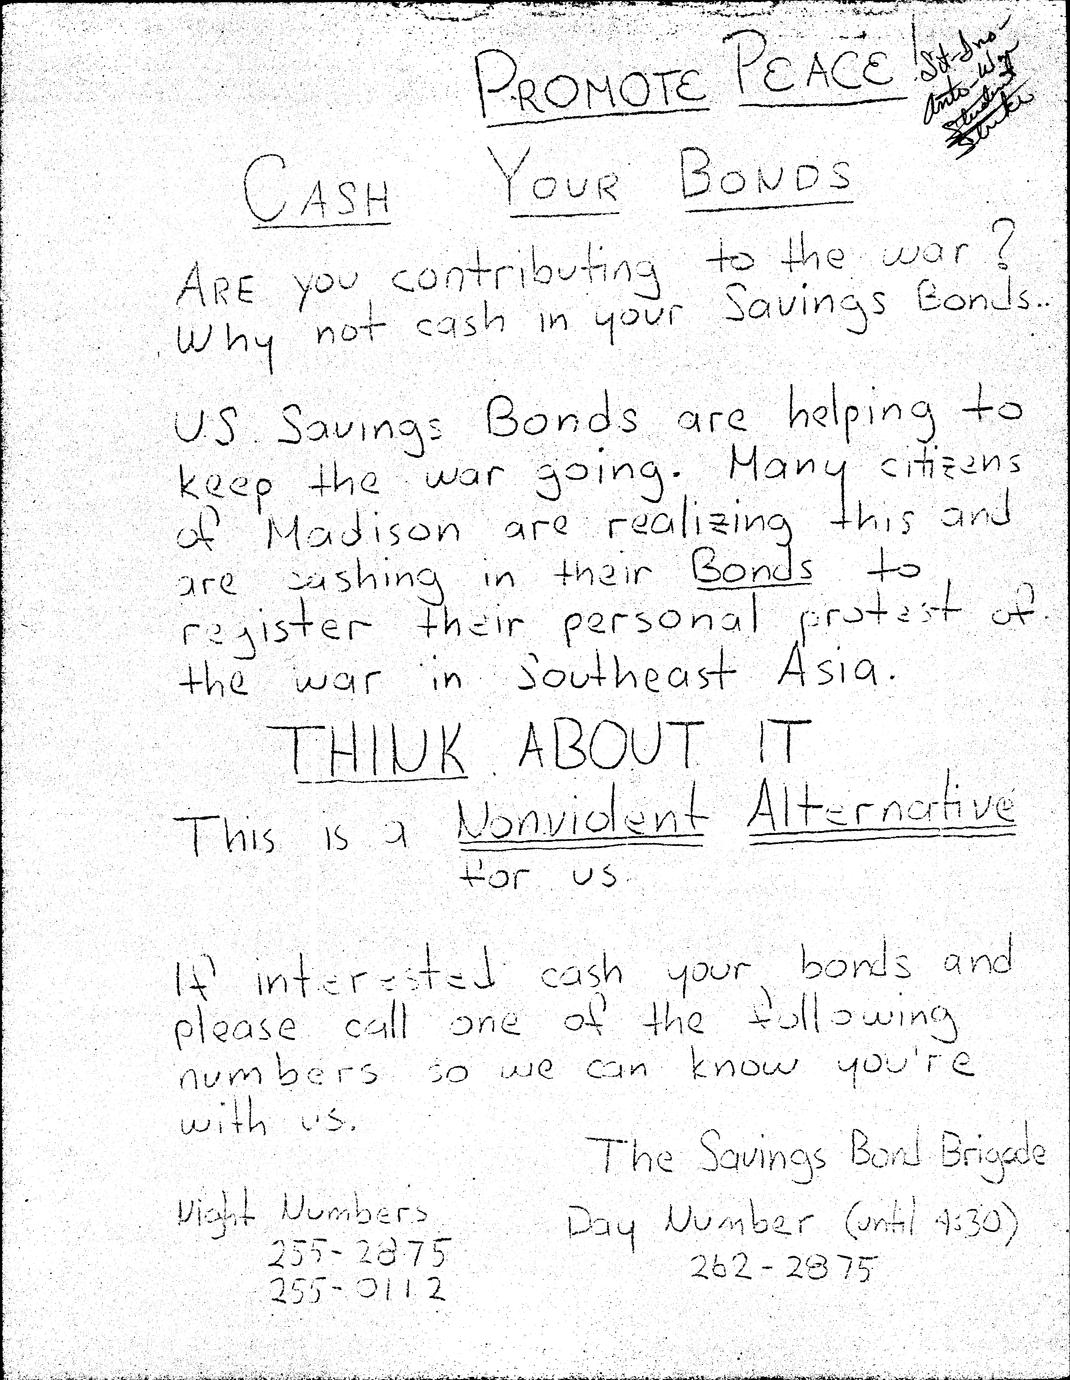 PROMOTE PEACE!
Sit-Ins-
Anti-War
Student
Strike
CASH YOUR BONDS
ARE you contributing to the war?
Why not cash in your Savings Bonds..
U.S. Savings Bonds are helping to
keep the war going. Many citizens
of Madison are realizing this and
are cashing in their Bonds to
register their personal protest of
the war in Southeast Asia.
THINK ABOUT IT
This is a Nonviolent Alternative
for us.
If interested cash your bonds and
please call one of the following
numbers so we can know you're
with us.
The Savings Bond Brigade
Night Numbers
255-2875
255-0112
Day Number (until 4:30)
262-2875